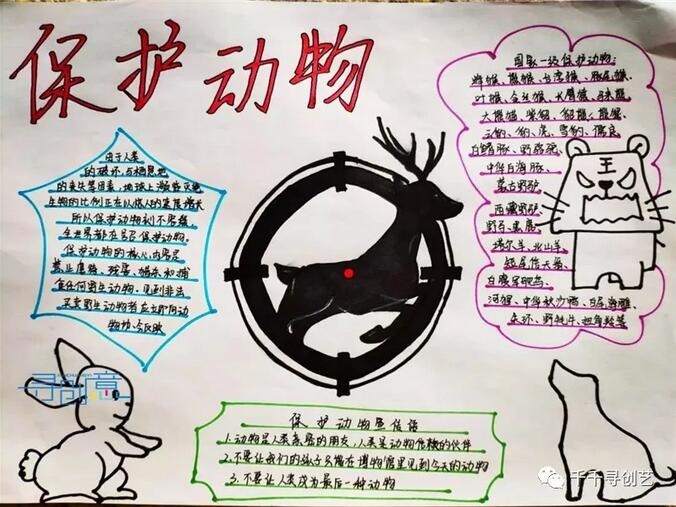 保护动物
由于人类
的破坏,与栖息地
的丧失等因素,地球上濒临灭绝
生物的比例正在以惊人的速度增长
所以保护动物刻不容缓,
全世界都在号召保护动物。
保护动物的核心内容是
禁止虐待、残害
任何野生动物,见到非法
买卖野生动物者应立即向动
物协会反映
国家一级保护动物:
蜂猴、熊猴、台湾猴、豚尾猴、
叶猴、金丝猴、长臂猿、马来熊
大熊猫、紫貂、貂熊、熊狸、
云豹、豹、虎、雪豹、儒艮
白鳍豚、
中华白海豚、
蒙古野驴
西藏野驴
野马、
塔尔羊、北山羊
河狸、中华秋沙鸭、白尾海雕、
朱环、野牦牛、
保护动物宣传语
1.动物是人类亲密的朋友,人类是动物信赖的伙伴
2.不要让我们的孩子只能在博物馆里见到今天的动物
3.不要让人类成为最后一种动物
王
寻创意
千千寻创艺